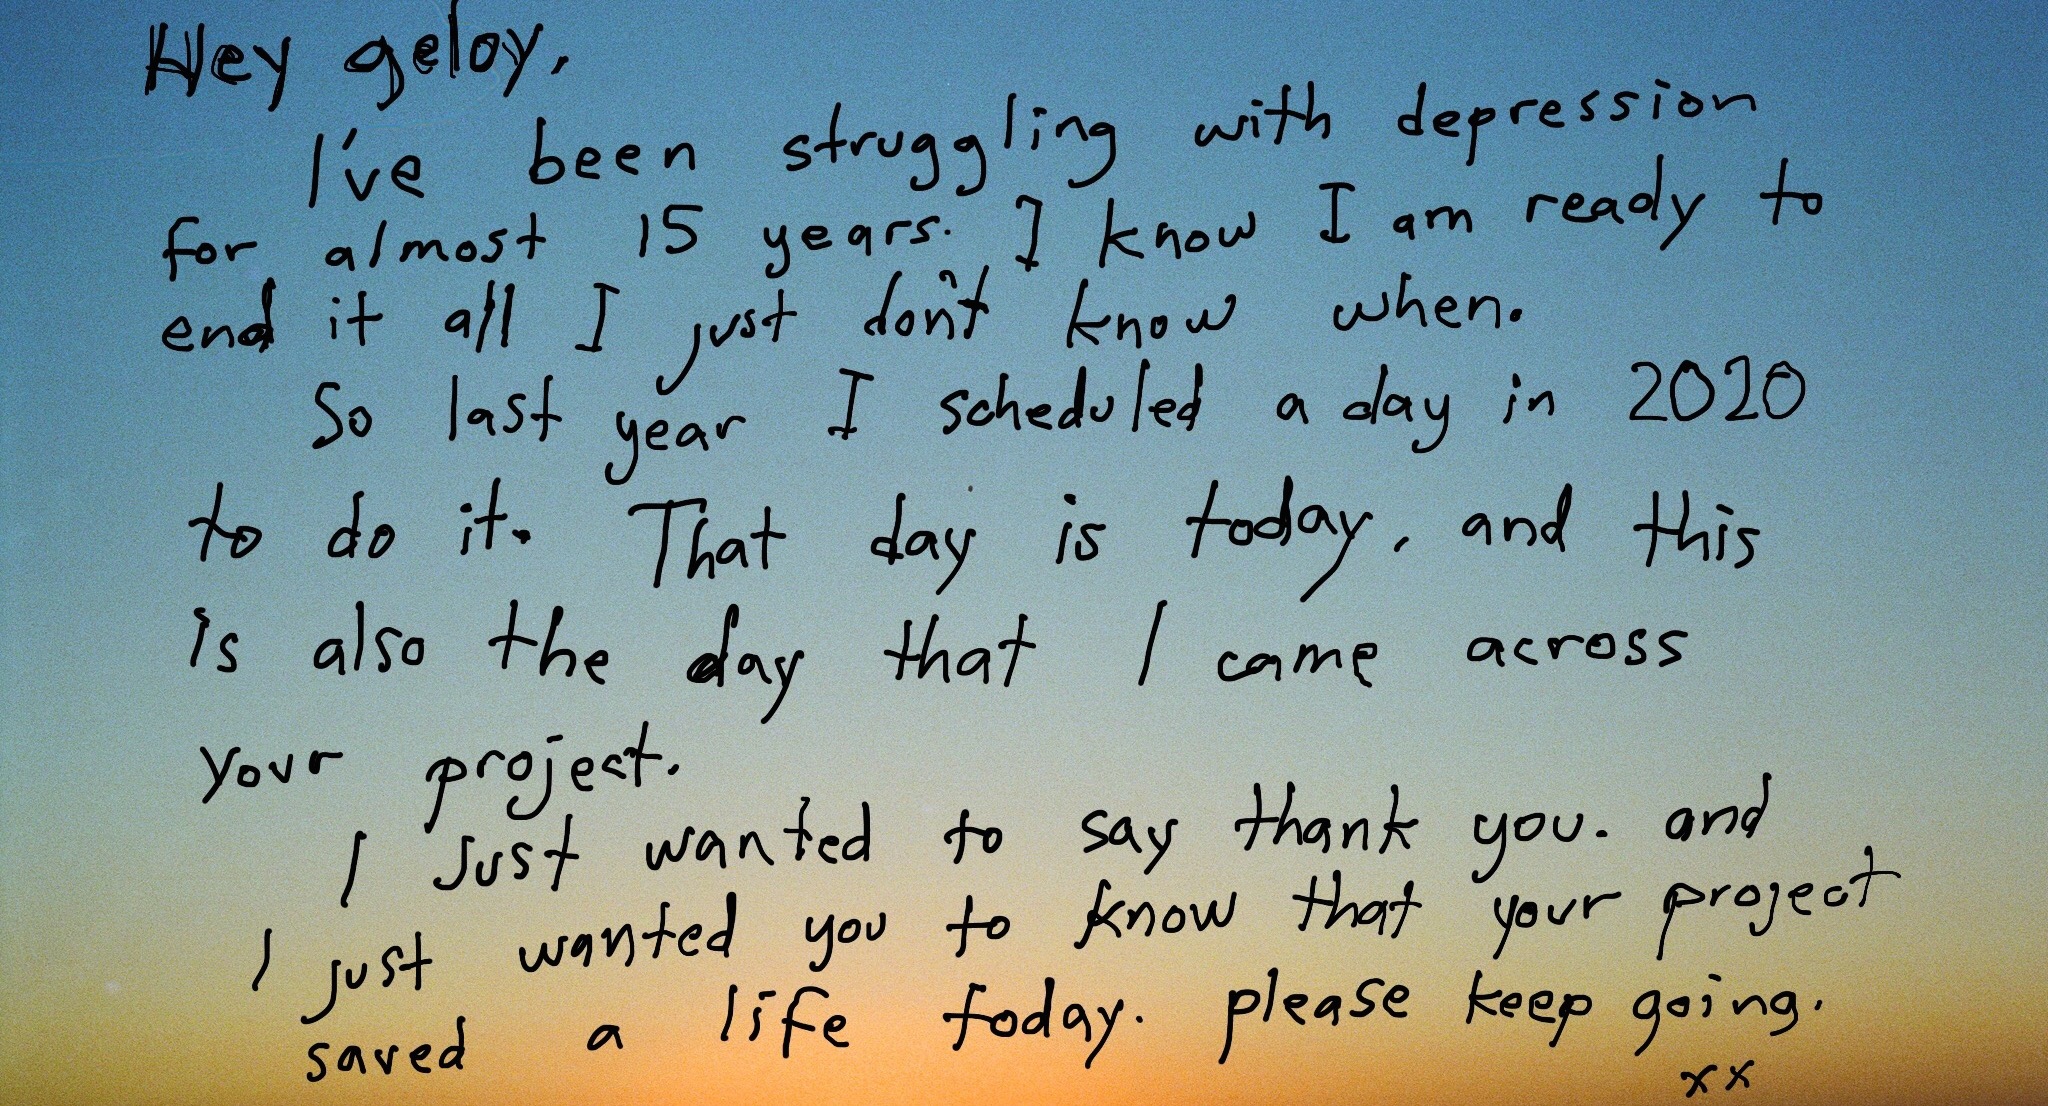 Hey geloy,
I've been struggling with depression
for almost 15 years. I know I am ready to
end it all I just don't know when.
So last year I scheduled a day in 2020
to do it. That day is today, and this
is also the day that I came across
your project.
I just wanted to say thank you. and
I just wanted you to know that your project
saved a life today. please keep going.
xx